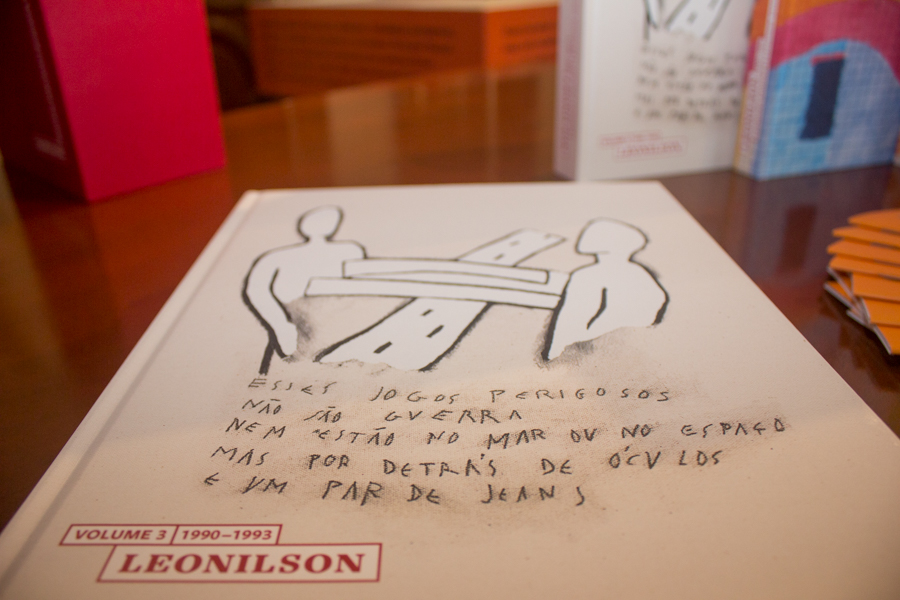 ESSES JOGOS PERIGOSOS
NÃO SÃO GUERRA
NEM ESTÃO NO MAR OU NO ESPAÇO
MAS POR DETRÁS DE ÓCULOS
E UM PAR DE JEANS
VOLUME 3 1990–1993
LEONILSON
LEONILSON